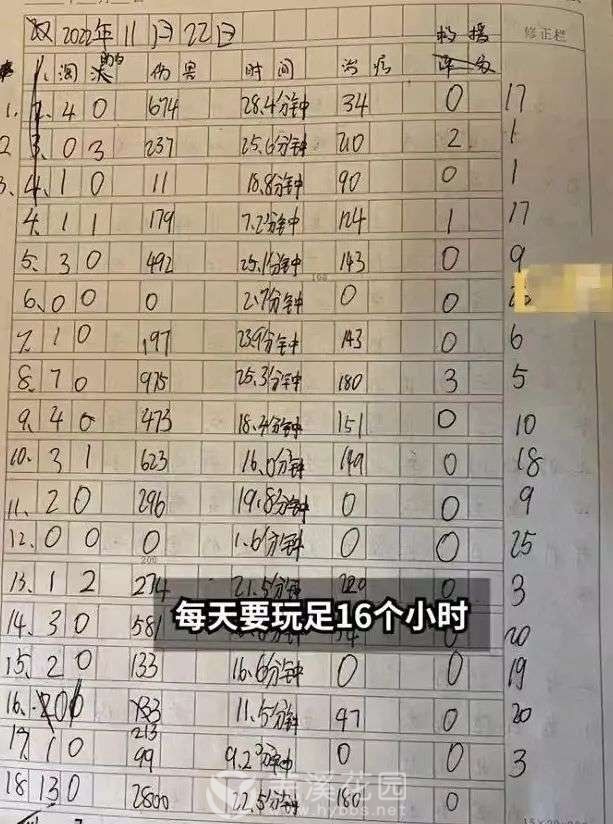 双 2022年11月22日 修正栏
淘汰 助攻 伤害 时间 治疗 救援
1. 4 0 674 28.4分钟 34 0 17
2 3. 0 3 237 25.6分钟 210 2 1
3. 4. 1 0 11 18.8分钟 90 0 1
4. 1 1 179 7.2分钟 124 1 17
5. 3 0 492 25.1分钟 143 0 9
6. 0 0 0 2.7分钟 0 0
7. 1 0 197 23.9分钟 143 0 6
8. 7 0 975 25.3分钟 180 3 5
9. 4 0 473 18.4分钟 151 0 10
10. 3 1 623 16.0分钟 199 0 18
11. 2 0 296 19.8分钟 0 0 9
12. 0 0 0 1.6分钟 0 0 25
13. 1 2 274 21.5分钟 220 0 3
每天要玩足16个小时
14. 3 0 581 0 20
15. 2 0 133 16.6分钟 0 0 19
16. 11.5分钟 97 0 20
213
17. 1 0 99 9.2分钟 0 0 3
18. 13 0 2800 22.5分钟 180 0
溪花园
www.hybbs.net